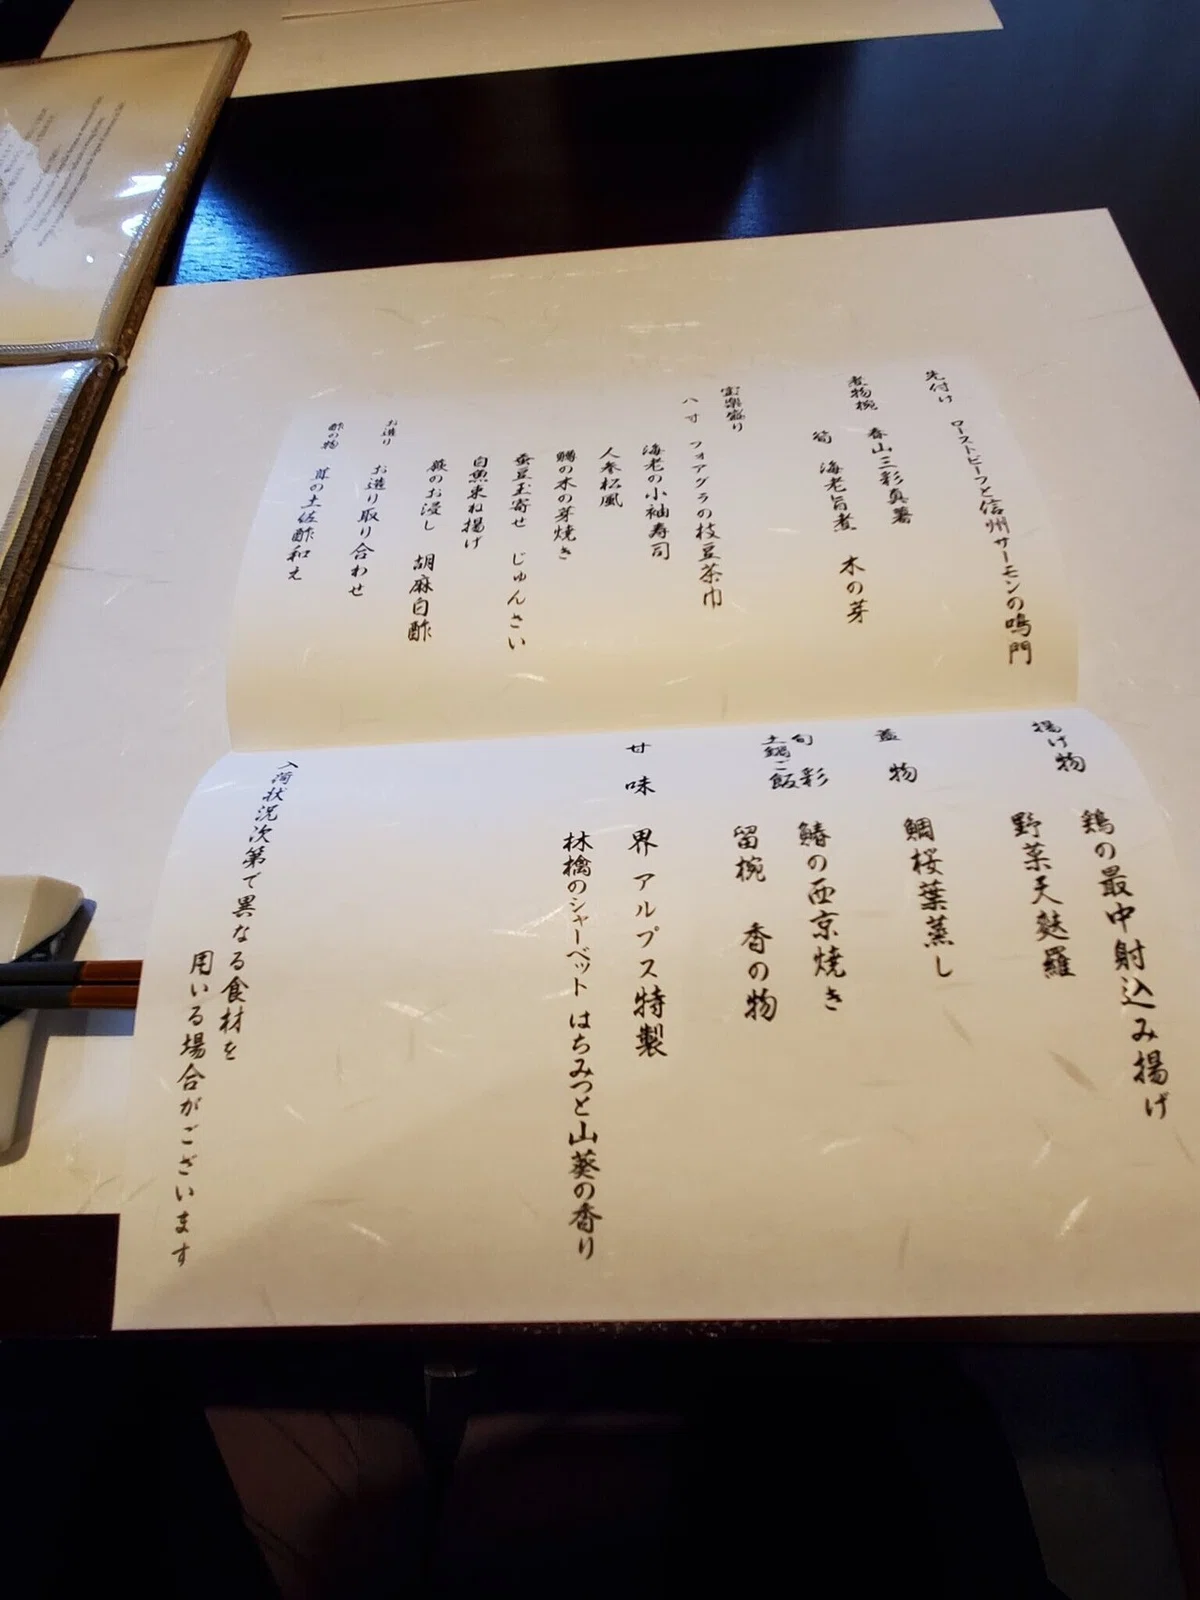 先付け ローストビーフと信州サーモンの鳴門
煮物椀 春山三彩真薯
筍 海老旨煮 木の芽
宝楽盛り
八寸 フォアグラの枝豆茶巾
海老の小袖寿司
人参松風
鰆の木の芽焼き
蚕豆玉寄せ じゅんさい
白魚束ね揚げ
蕨のお浸し 胡麻白酢
お造り お造り取り合わせ
酢の物 茸の土佐酢和え
揚げ物 鶏の最中射込み揚げ
野菜天麩羅
蓋物 鯛桜葉蒸し
旬彩 鰆の西京焼き
土鍋ご飯 留椀 香の物
甘味 界 アルプス特製
林檎のシャーベット はちみつと山葵の香り
入荷状況次第で異なる食材を
用いる場合がございます